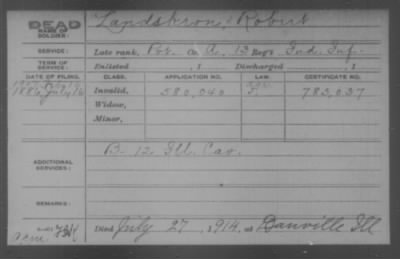 DEAD
NAME OF SOLDIER: Landstrom, Robert
SERVICE: Late rank, Pvt Co. A, 13 Reg't Ind. Inf.
TERM OF SERVICE: Enlisted , 1 Discharged , 1
DATE OF FILING. CLASS. APPLICATION NO. LAW. CERTIFICATE NO.
1886 July 16 Invalid, 580,040 783,037
Widow,
Minor,
ADDITIONAL SERVICES: B-12 Ill. Cav.
REMARKS:
Died July 27, 1914, at Danville Ill